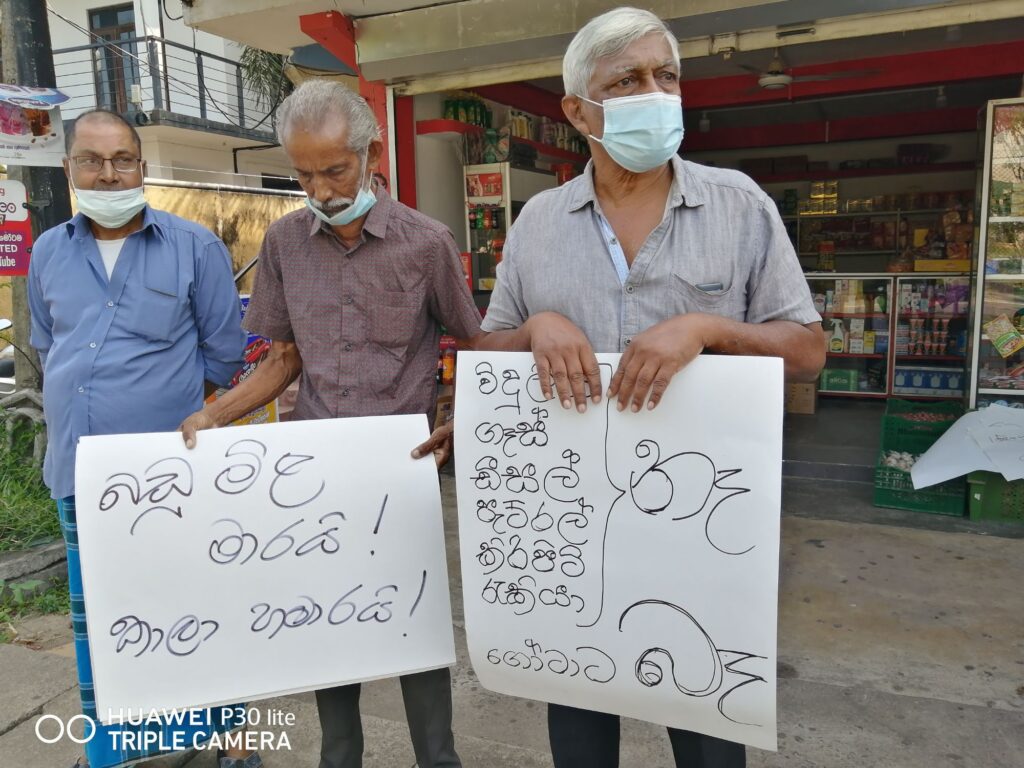 බඩු මිල
මාරයි!
කාලා හමාරයි!
විදුලි
ගෑස්
ඩීසල්
පැට්රල්
කිරිපිටි
රැකියා
නෑ
ගෝටාට
බෑ
HUAWEI P30 lite
TRIPLE CAMERA